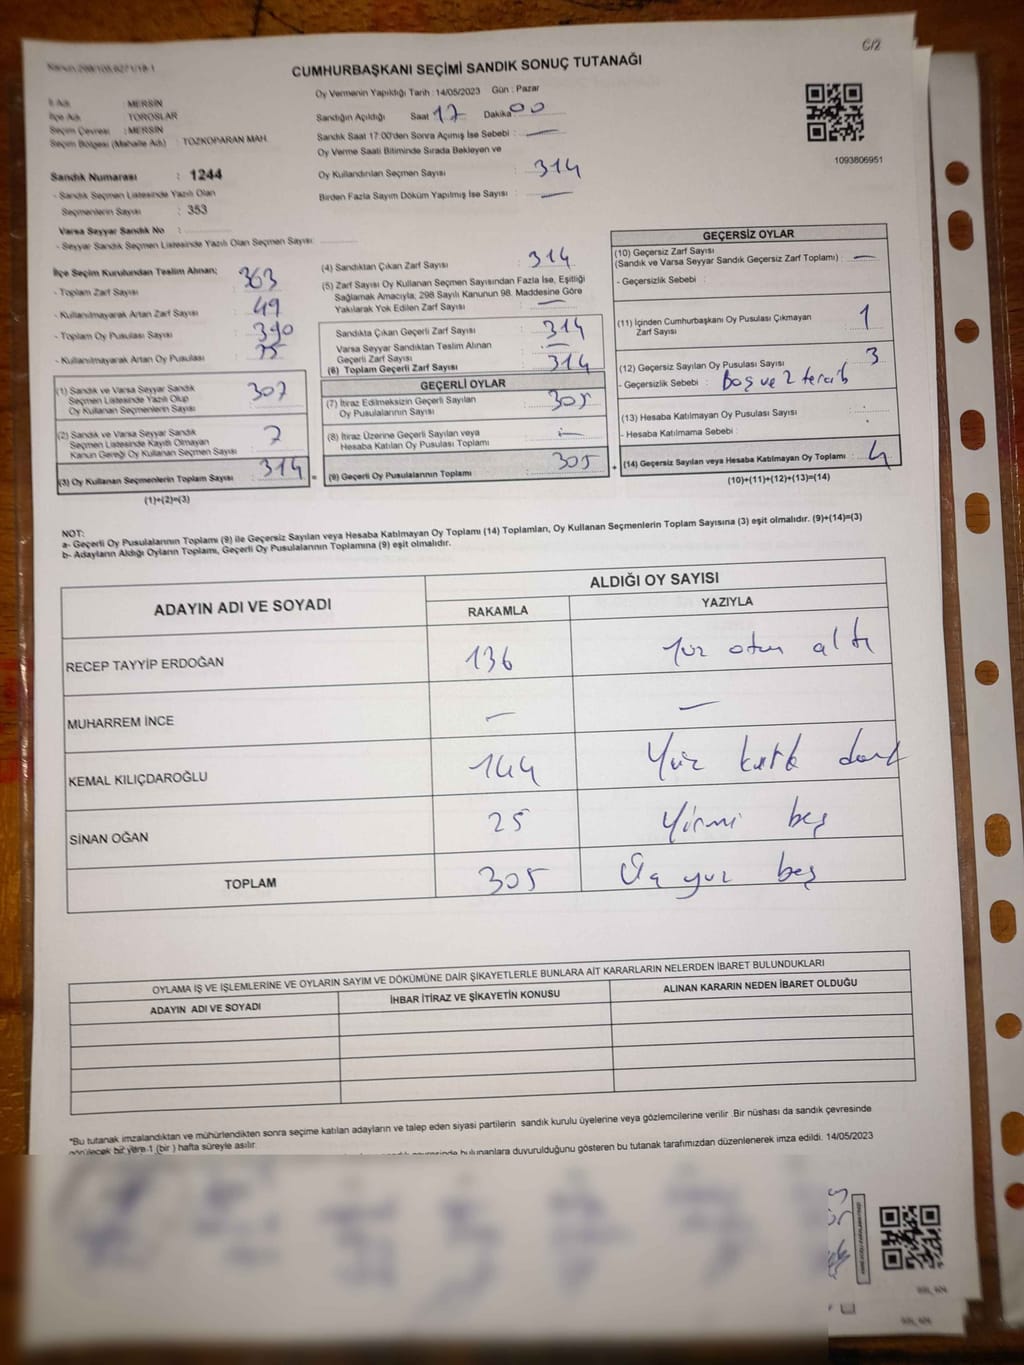 C/2
CUMHURBAŞKANI SEÇİMİ SANDIK SONUÇ TUTANAĞI
İl Adı : MERSİN
İlçe Adı : TOROSLAR
Seçim Çevresi : MERSİN
Seçim Bölgesi (Mahalle Adı) : TOZKOPARAN MAH.
Sandık Numarası : 1244
- Sandık Seçmen Listesinde Yazılı Olan
Seçmenlerin Sayısı : 353
Varsa Seyyar Sandık No :
- Seyyar Sandık Seçmen Listesinde Yazılı Olan Seçmen Sayısı:
Oy Vermenin Yapıldığı Tarih : 14/05/2023 Gün : Pazar
Sandığın Açıldığı Saat 17 Dakika 00
Sandık Saat 17:00'den Sonra Açımış İse Sebebi : —
Oy Verme Saati Bitiminde Sırada Bekleyen ve
Oy Kullandırılan Seçmen Sayısı : 314
Birden Fazla Sayım Döküm Yapılmış İse Sayısı : —
1093806951
İlçe Seçim Kurulundan Teslim Alınan;
- Toplam Zarf Sayısı : 363
- Kullanılmayarak Artan Zarf Sayısı : 49
- Toplam Oy Pusulası Sayısı : 390
- Kullanılmayarak Artan Oy Pusulası : 75
(1) Sandık ve Varsa Seyyar Sandık
Seçmen Listesinde Yazılı Olup
Oy Kullanan Seçmenlerin Sayısı : 307
(2) Sandık ve Varsa Seyyar Sandık
Seçmen Listesinde Kayıtlı Olmayan
Kanun Gereği Oy Kullanan Seçmen Sayısı : 7
(3) Oy Kullanan Seçmenlerin Toplam Sayısı : 314 =
(1)+(2)=(3)
(4) Sandıktan Çıkan Zarf Sayısı : 314
(5) Zarf Sayısı Oy Kullanan Seçmen Sayısından Fazla İse, Eşitliği
Sağlamak Amacıyla, 298 Sayılı Kanunun 98. Maddesine Göre
Yakılarak Yok Edilen Zarf Sayısı : —
Sandıkta Çıkan Geçerli Zarf Sayısı : 314
Varsa Seyyar Sandıktan Teslim Alınan
Geçerli Zarf Sayısı : —
(6) Toplam Geçerli Zarf Sayısı : 314
GEÇERLİ OYLAR
(7) İtiraz Edilmeksizin Geçerli Sayılan
Oy Pusulalarının Sayısı : 305
(8) İtiraz Üzerine Geçerli Sayılan veya
Hesaba Katılan Oy Pusulası Toplamı : —
(9) Geçerli Oy Pusulalarının Toplamı : 305 +
GEÇERSİZ OYLAR
(10) Geçersiz Zarf Sayısı
(Sandık ve Varsa Seyyar Sandık Geçersiz Zarf Toplamı) : —
- Geçersizlik Sebebi :
(11) İçinden Cumhurbaşkanı Oy Pusulası Çıkmayan
Zarf Sayısı : 1
(12) Geçersiz Sayılan Oy Pusulası Sayısı : 3
- Geçersizlik Sebebi : Boş ve 2 tercih
(13) Hesaba Katılmayan Oy Pusulası Sayısı :
- Hesaba Katılmama Sebebi :
(14) Geçersiz Sayılan veya Hesaba Katılmayan Oy Toplamı : 4
(10)+(11)+(12)+(13)=(14)
NOT:
a- Geçerli Oy Pusulalarının Toplamı (9) ile Geçersiz Sayılan veya Hesaba Katılmayan Oy Toplamı (14) Toplamları, Oy Kullanan Seçmenlerin Toplam Sayısına (3) eşit olmalıdır. (9)+(14)=(3)
b- Adayların Aldığı Oyların Toplamı, Geçerli Oy Pusulalarının Toplamına (9) eşit olmalıdır.
ADAYIN ADI VE SOYADI ALDIĞI OY SAYISI
RAKAMLA YAZIYLA
RECEP TAYYİP ERDOĞAN 136 Yüz otuz altı
MUHARREM İNCE — —
KEMAL KILIÇDAROĞLU 144 Yüz kırk dört
SİNAN OĞAN 25 Yirmi beş
TOPLAM 305 Üç yüz beş
OYLAMA İŞ VE İŞLEMLERİNE VE OYLARIN SAYIM VE DÖKÜMÜNE DAİR ŞİKAYETLERLE BUNLARA AİT KARARLARIN NELERDEN İBARET BULUNDUKLARI
ADAYIN ADI VE SOYADI İHBAR İTİRAZ VE ŞİKAYETİN KONUSU ALINAN KARARIN NEDEN İBARET OLDUĞU
*Bu tutanak imzalandıktan ve mühürlendikten sonra seçime katılan adayların ve talep eden siyasi partilerin sandık kurulu üyelerine veya gözlemcilerine verilir .Bir nüshası da sandık çevresinde
görülecek bir yere 1 (bir ) hafta süreyle asılır.
bulunanlara duyurulduğunu gösteren bu tutanak tarafımızdan düzenlenerek imza edildi. 14/05/2023